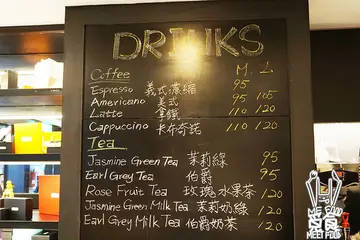 DRINKS
Coffee M. L
Espresso 義式濃縮 95
Americano 美式 95 105
Latte 拿鐵 110 120
Cappuccino 卡布奇諾 110 120
Tea
Jasmine Green Tea 茉莉綠 95
Earl Grey Tea 伯爵 95
Rose Fruit Tea 玫瑰水果茶 120
Jasmine Green Milk Tea 茉莉奶綠 120
Earl Grey Milk Tea 伯爵奶茶 120